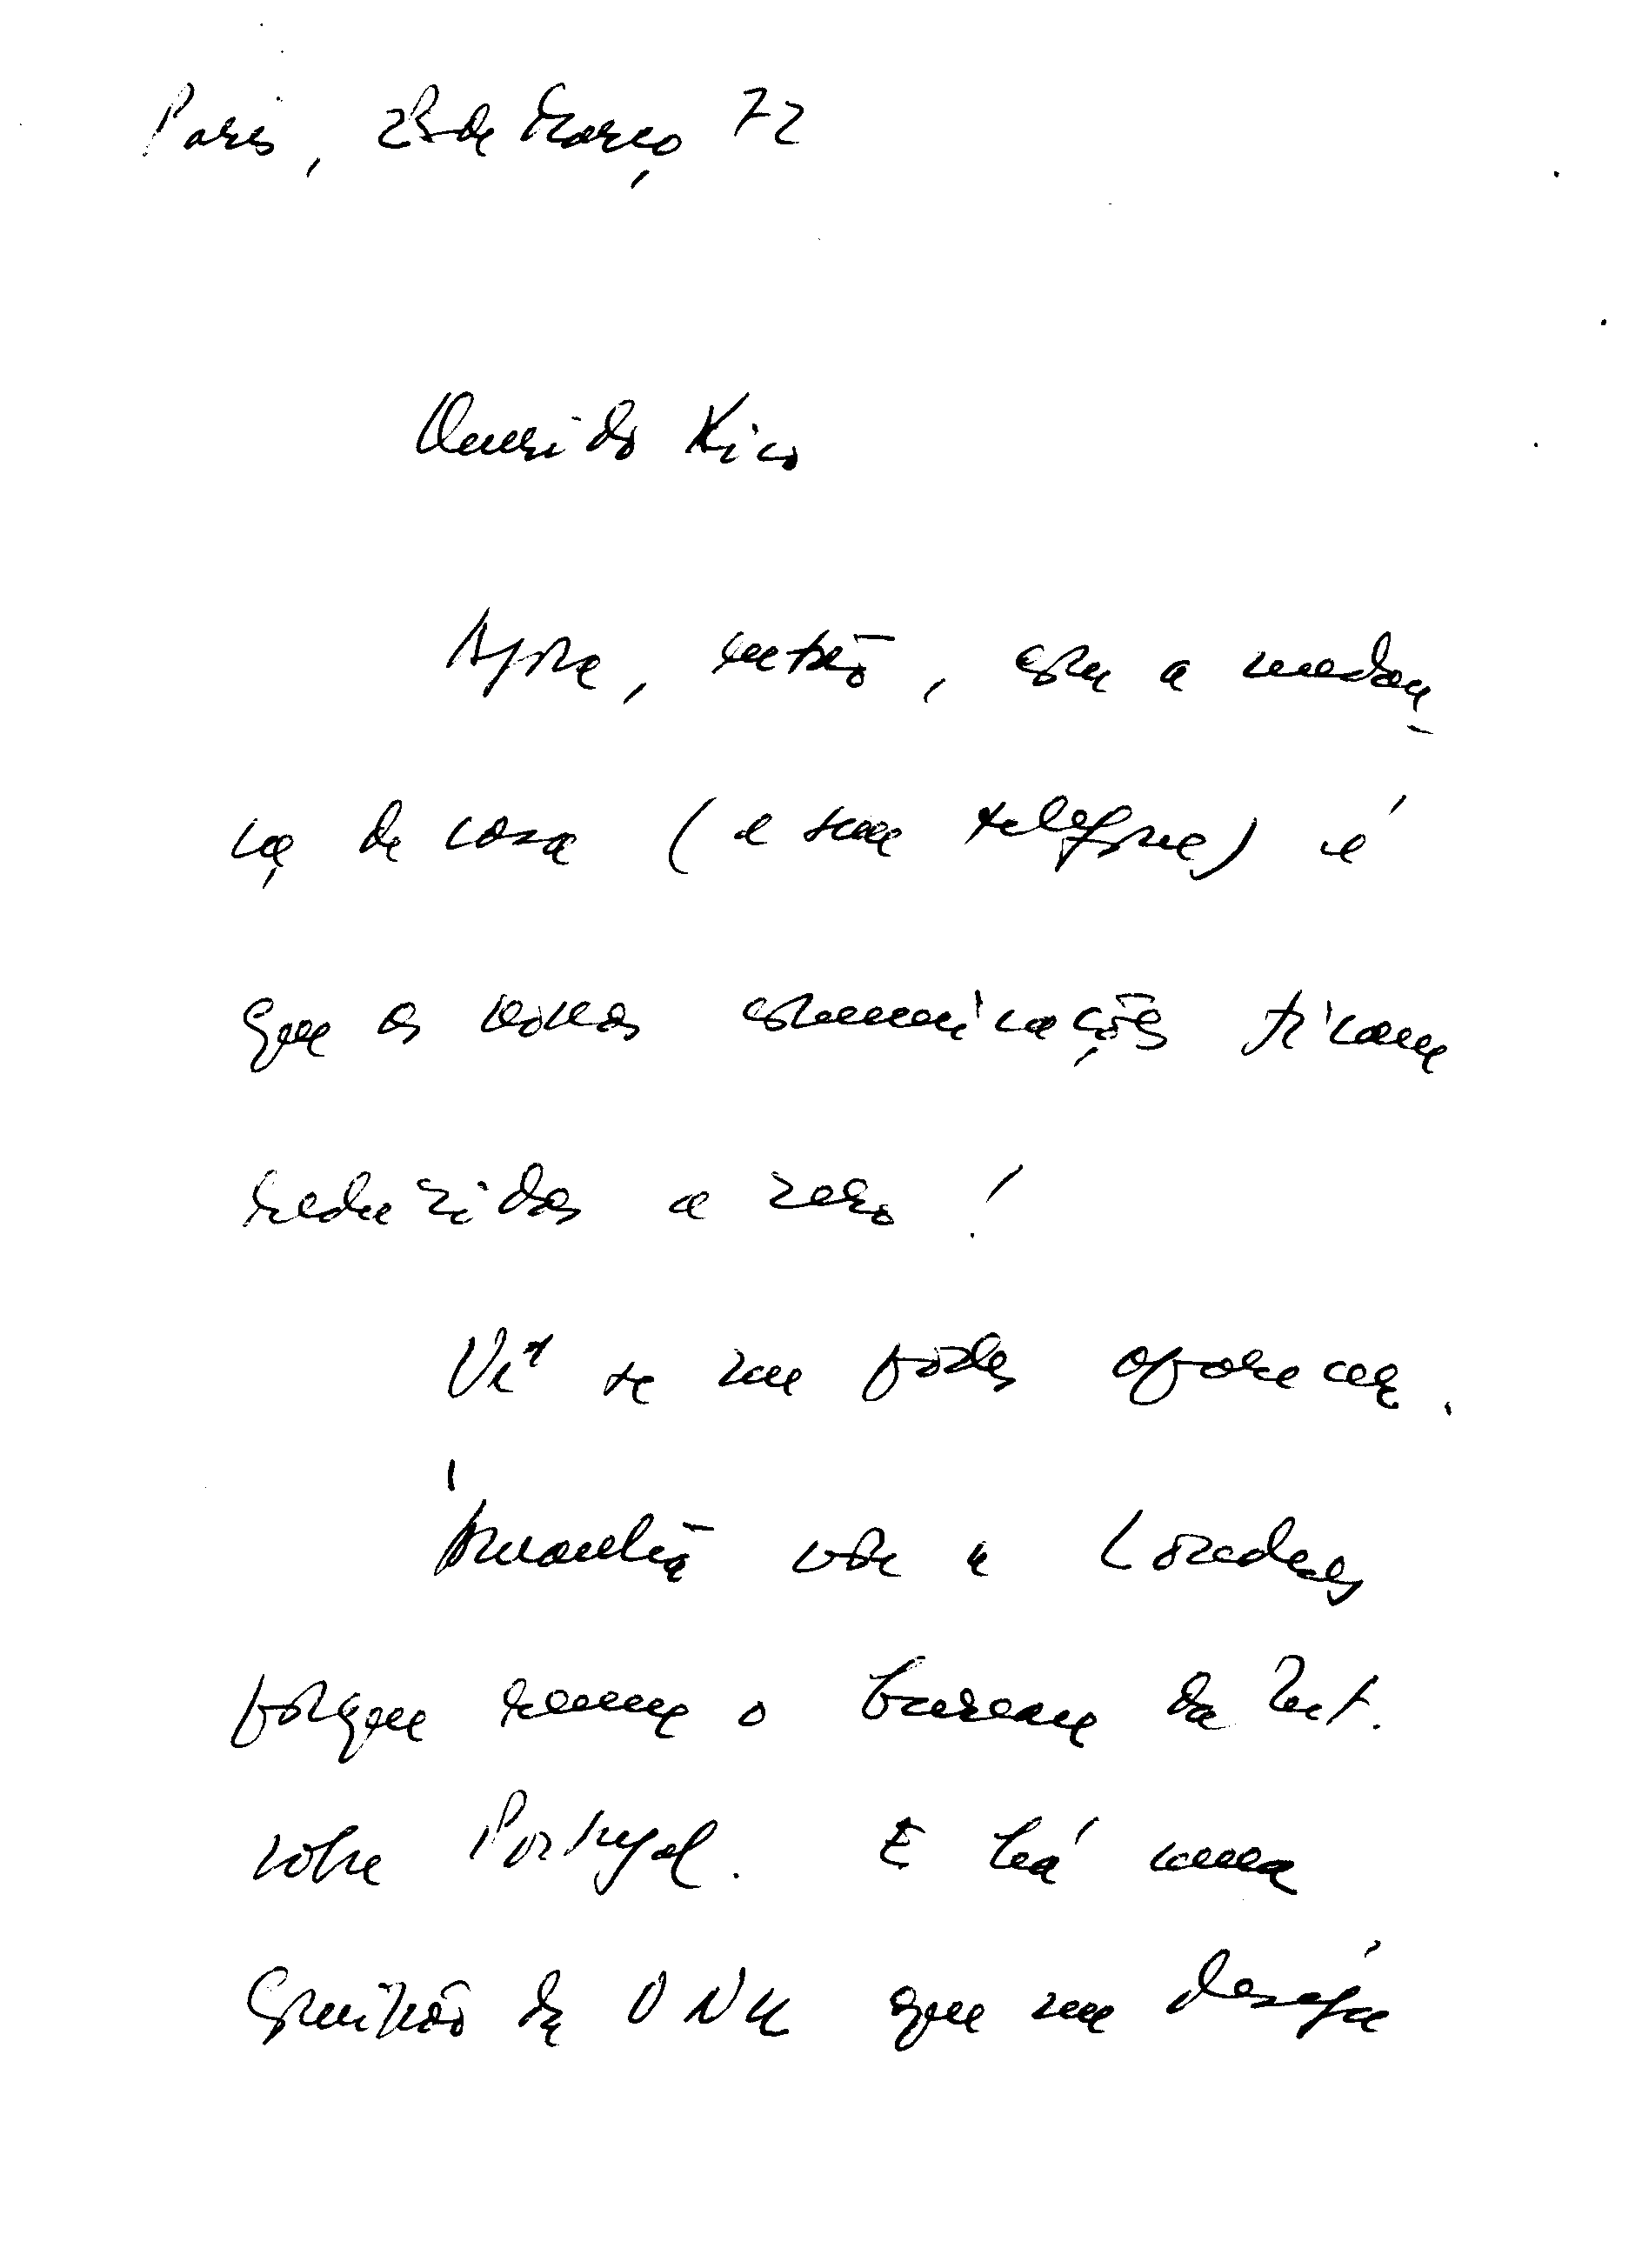 Paris, 23 de Março 72
Querido Kico
Agora, então, com a mudan-
ça de casa (e sem telefone) é
que as nossas comunicações ficam
reduzidas a zero!
Vê se me podes aparecer.
Amanhã vou a Londres
porque reune o bureau da Int.
sobre Portugal. E há uma
comissão da ONU que me deseja